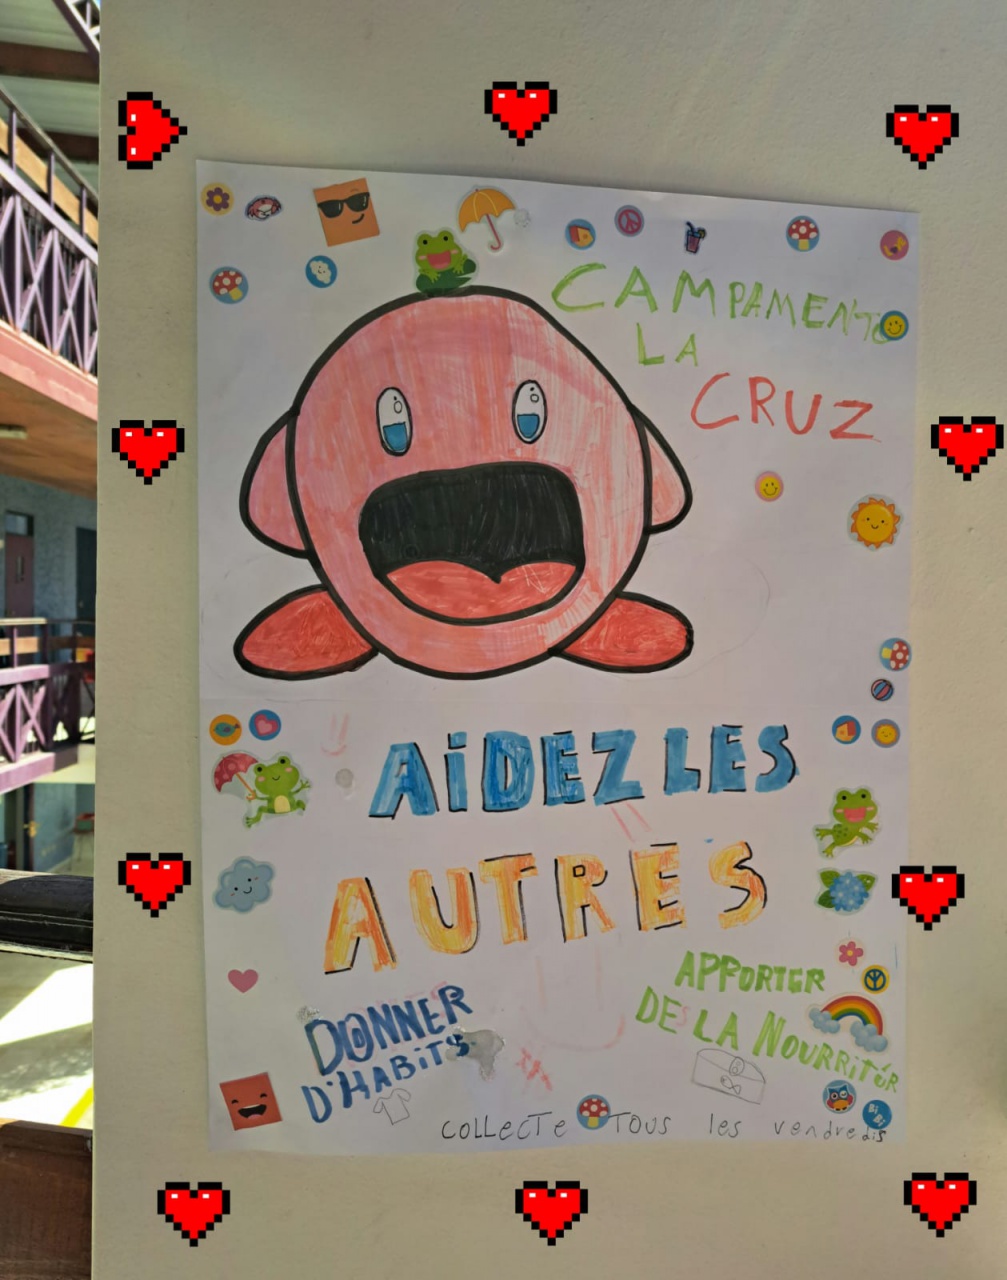 CAMPAMENTO
LA
CRUZ
AiDEZ LES
AUTRES
DONNER
D'HABiTS
APPORTER
DES LA NOURRiTUR
COLLECTE TOUS les vendredis
BiBi